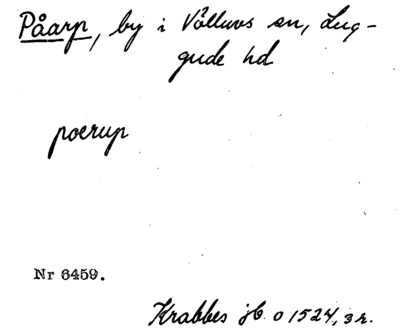 Påarp, by i Välluvs sn, Lug-
gude hd
poerup
Nr 6459.
Krabbes jb o 1524, s r.